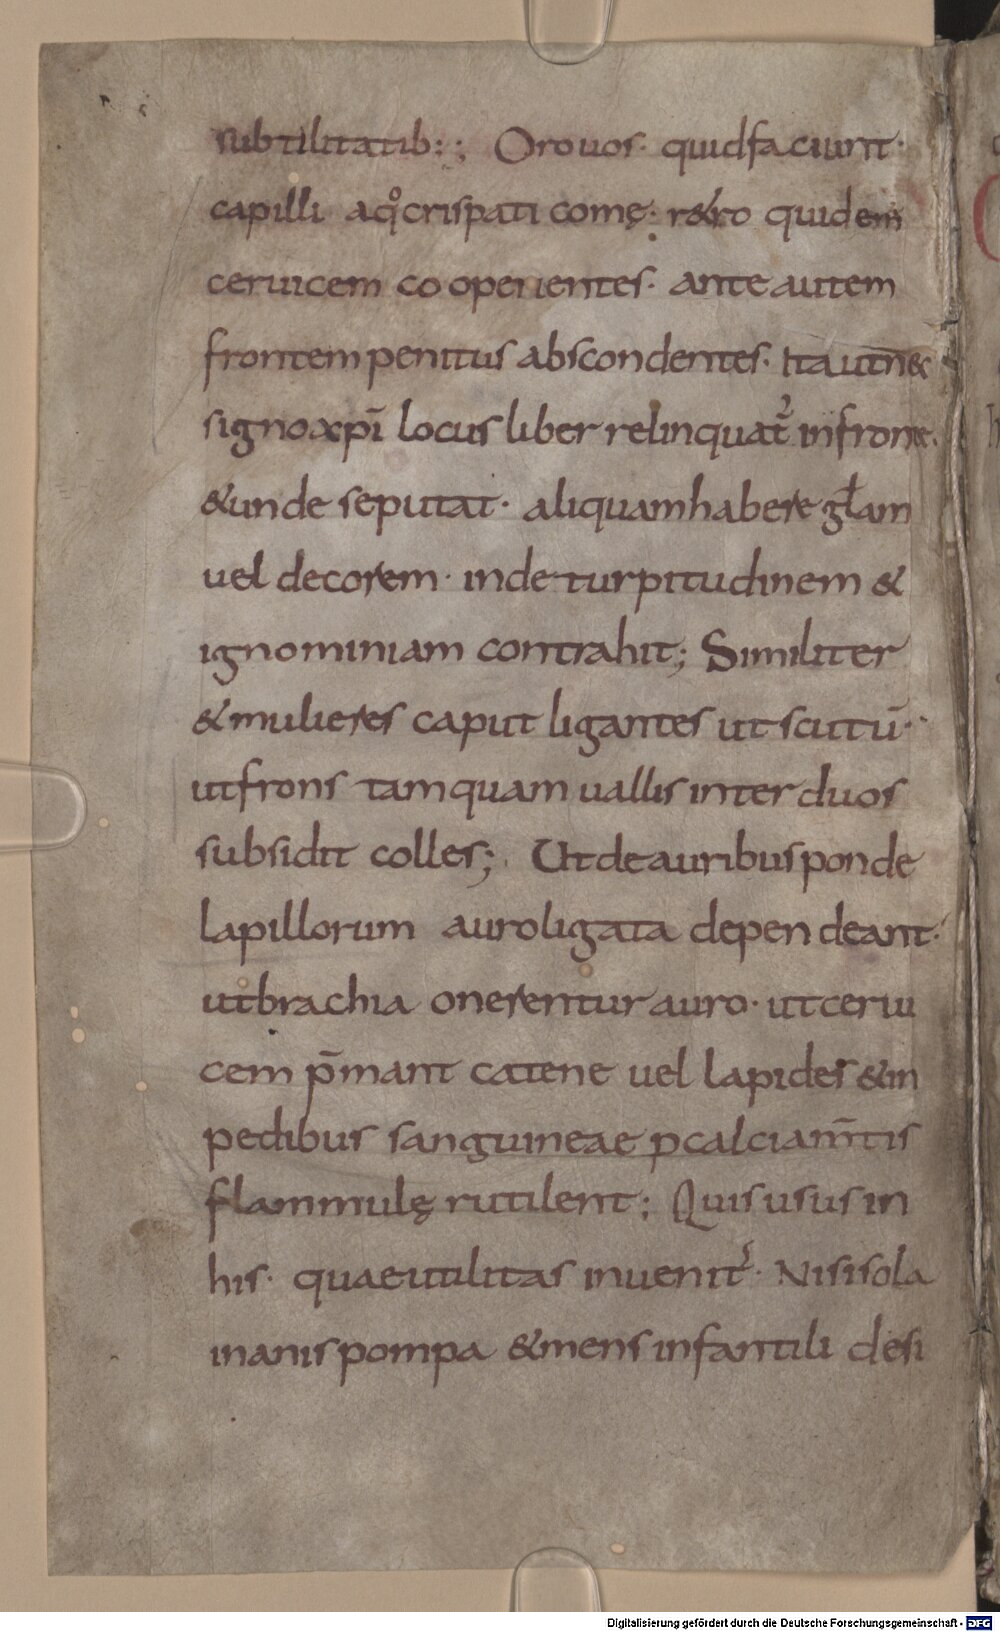 subtilitatib:; Oro uos· quid faciunt·
capilli aq̊ crispati comę· r&ro quidem
ceruicem cooperientes· ante autem
frontem penitus abscondentes· Ita ut n&
signo xp̄i locus liber relinquat᷑ in fronte·
& unde se putat· aliquam habere gƚam
uel decorem· inde turpitudinem &
ignominiam contrahit; Similiter
& mulieres caput ligantes ut scutū·
ut frons tamquam uallis inter duos
subsidit colles; Ut de auribus ponde
lapillorum auro ligata dependeant·
ut brachia onerentur auro· ut cerui
cem p̄mant catene uel lapides & in
pedibus sanguineae p calciam̄tis
flammulę rutilent; Quis usus in
his· quae utilitas inuenit᷑· Nisi sola
inanis pompa & mens infantili desi
Digitalisierung gefördert durch die Deutsche Forschungsgemeinschaft - DFG